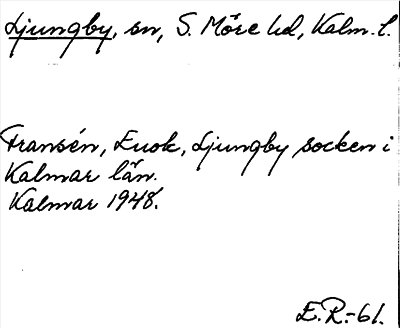 Ljungby, sn, S. Möre hd, Kalm. l.
Fransén, Enok, Ljungby socken i
Kalmar län.
Kalmar 1948.
E.R.-61.